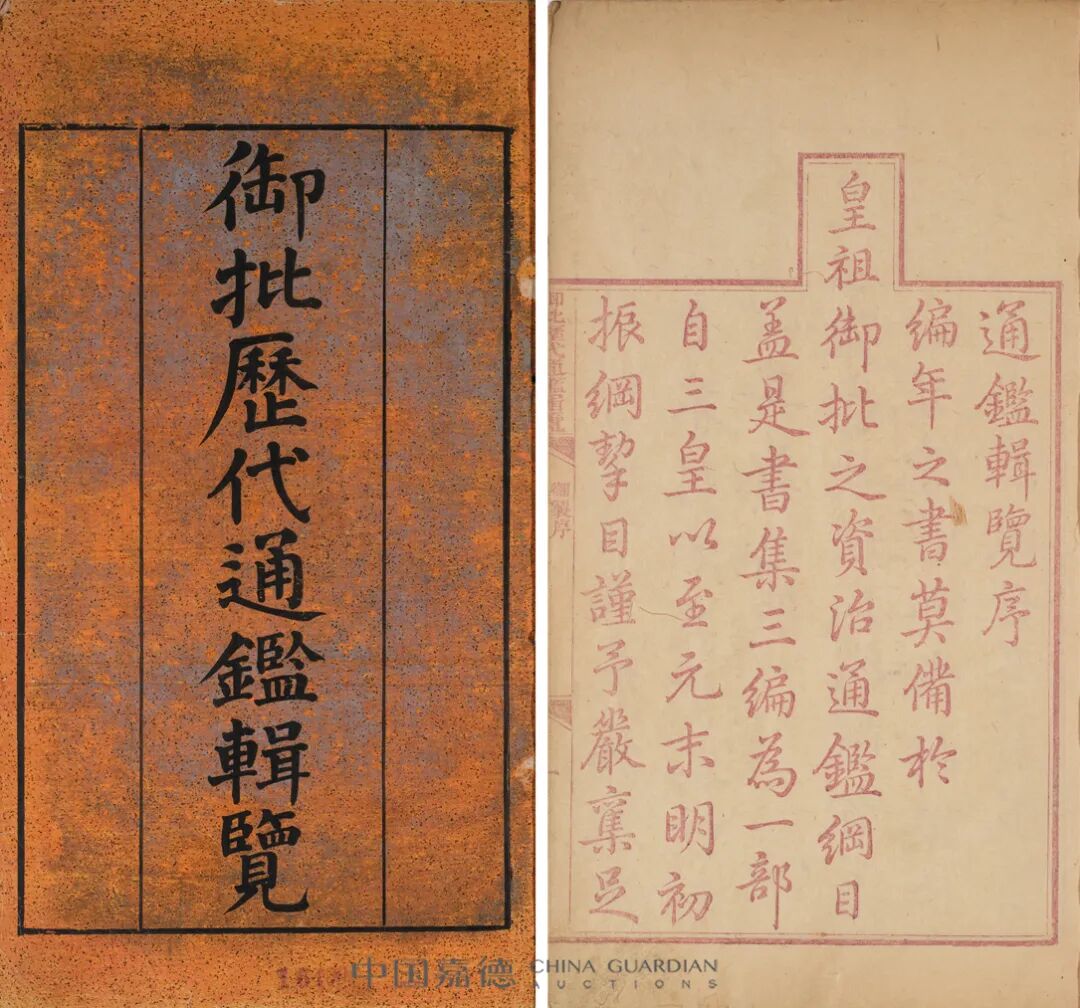 御批歷代通鑑輯覽
通鑑輯覽序
編年之書莫備於
皇祖御批之資治通鑑綱目
盖是書集三編為一部
自三皇以至元末明初
振綱挈目謹予嚴
足
御批歷代通鑑輯覽
御製序
中国嘉德 CHINA GUARDIAN
AUCTIONS